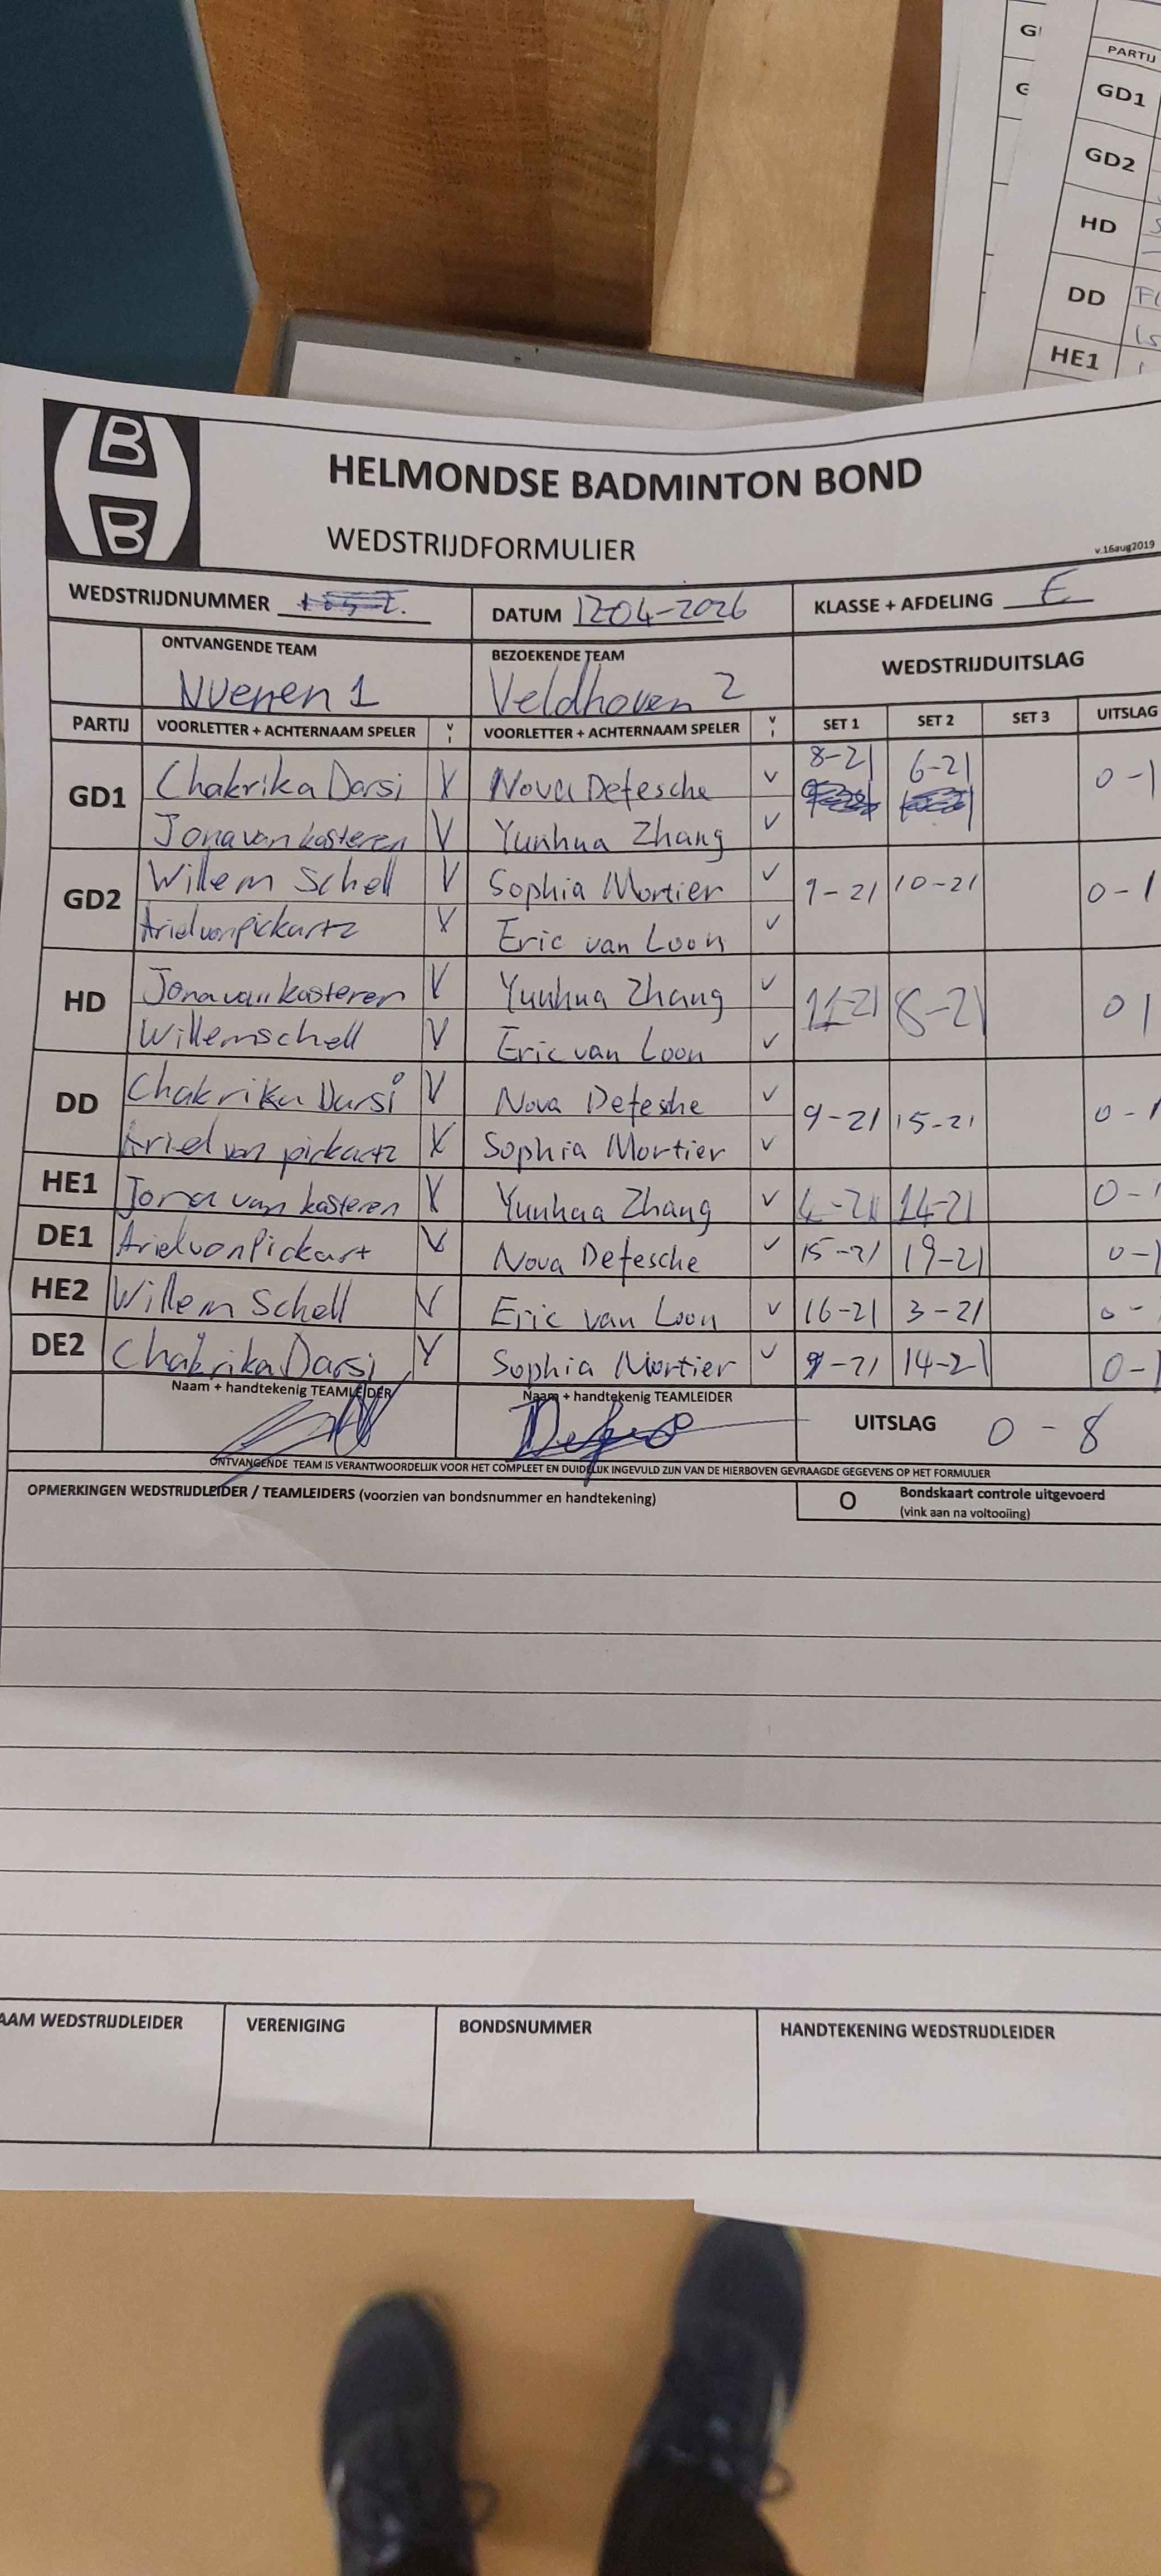 G
G
PARTIJ
GD1
GD2
HD
DD
HE1
B
B
HELMONDSE BADMINTON BOND
WEDSTRIJDFORMULIER
v.16aug2019
WEDSTRIJDNUMMER
DATUM 12-04-2026
KLASSE + AFDELING E
ONTVANGENDE TEAM
BEZOEKENDE TEAM
WEDSTRIJDUITSLAG
Nuenen 1
Veldhoven 2
PARTIJ VOORLETTER + ACHTERNAAM SPELER VOORLETTER + ACHTERNAAM SPELER SET 1 SET 2 SET 3 UITSLAG
GD1 Chakrika Darsi V Nova Defesche V 8-21 6-21 0-1
Jona van kasteren V Yunhua Zhang V
GD2 Willem Schell V Sophia Mortier V 9-21 10-21 0-1
Ariel von pickartz V Eric van Loon V
HD Jona van kasteren V Yunhua Zhang V 11-21 8-21 0 1
Willem schell V Eric van Loon V
DD Chakrika Darsi V Nova Defesche V 9-21 15-21 0-1
Ariel von pickartz V Sophia Mortier V
HE1 Jona van kasteren V Yunhua Zhang V 4-21 14-21 0-1
DE1 Ariel von Pickart V Nova Defesche V 15-21 19-21 0-1
HE2 Willem Schell V Eric van Loon V 16-21 3-21 0-
DE2 Chakrika Darsi V Sophia Mortier V 9-21 14-21 0-1
Naam + handtekenig TEAMLEIDER
Naam + handtekenig TEAMLEIDER
UITSLAG 0-8
ONTVANGENDE TEAM IS VERANTWOORDELIJK VOOR HET COMPLEET EN DUIDELIJK INGEVULD ZIJN VAN DE HIERBOVEN GEVRAAGDE GEGEVENS OP HET FORMULIER
OPMERKINGEN WEDSTRIJDLEIDER / TEAMLEIDERS (voorzien van bondsnummer en handtekening)
O Bondskaart controle uitgevoerd
(vink aan na voltooiing)
AAM WEDSTRIJDLEIDER
VERENIGING
BONDSNUMMER
HANDTEKENING WEDSTRIJDLEIDER